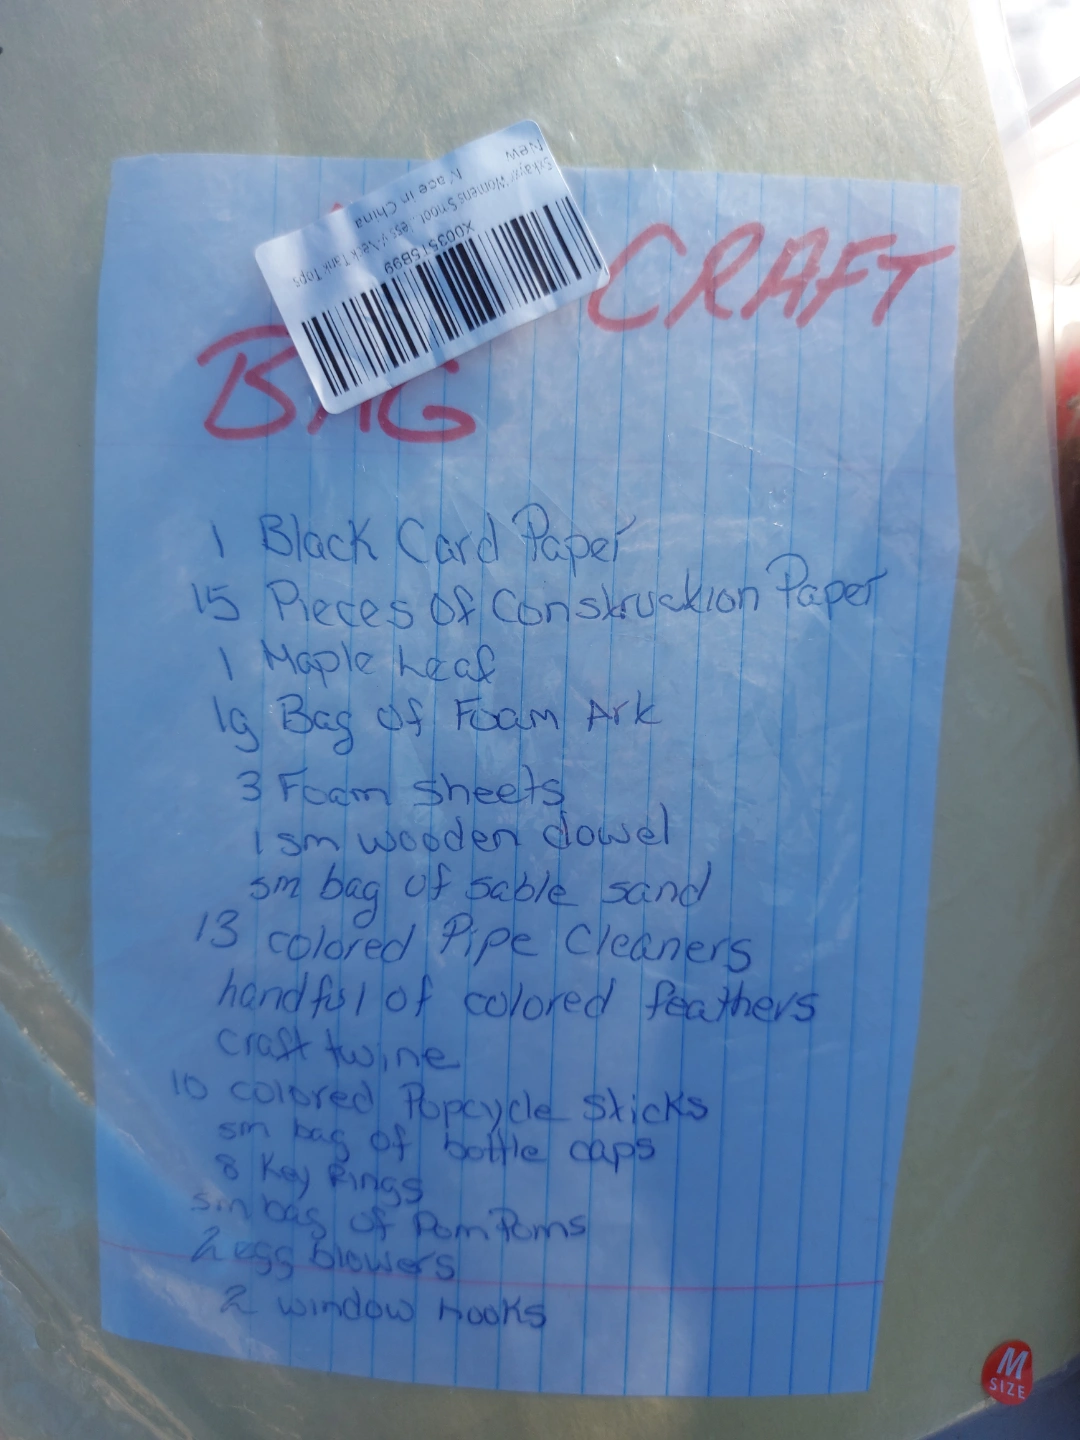 New
Made in China
Womens
V-Neck Tank Tops
X003515B99
CRAFT
BAG
1 Black Card Paper
15 Pieces of Construction Paper
1 Maple Leaf
1g Bag of Foam Ark
3 Foam sheets
1 sm wooden dowel
sm bag of sable sand
13 colored Pipe Cleaners
handful of colored feathers
craft twine
10 colored Popcycle Sticks
sm bag of bottle caps
8 Key Rings
sm bag of PomPoms
2 egg blowers
2 window hooks
M
SIZE